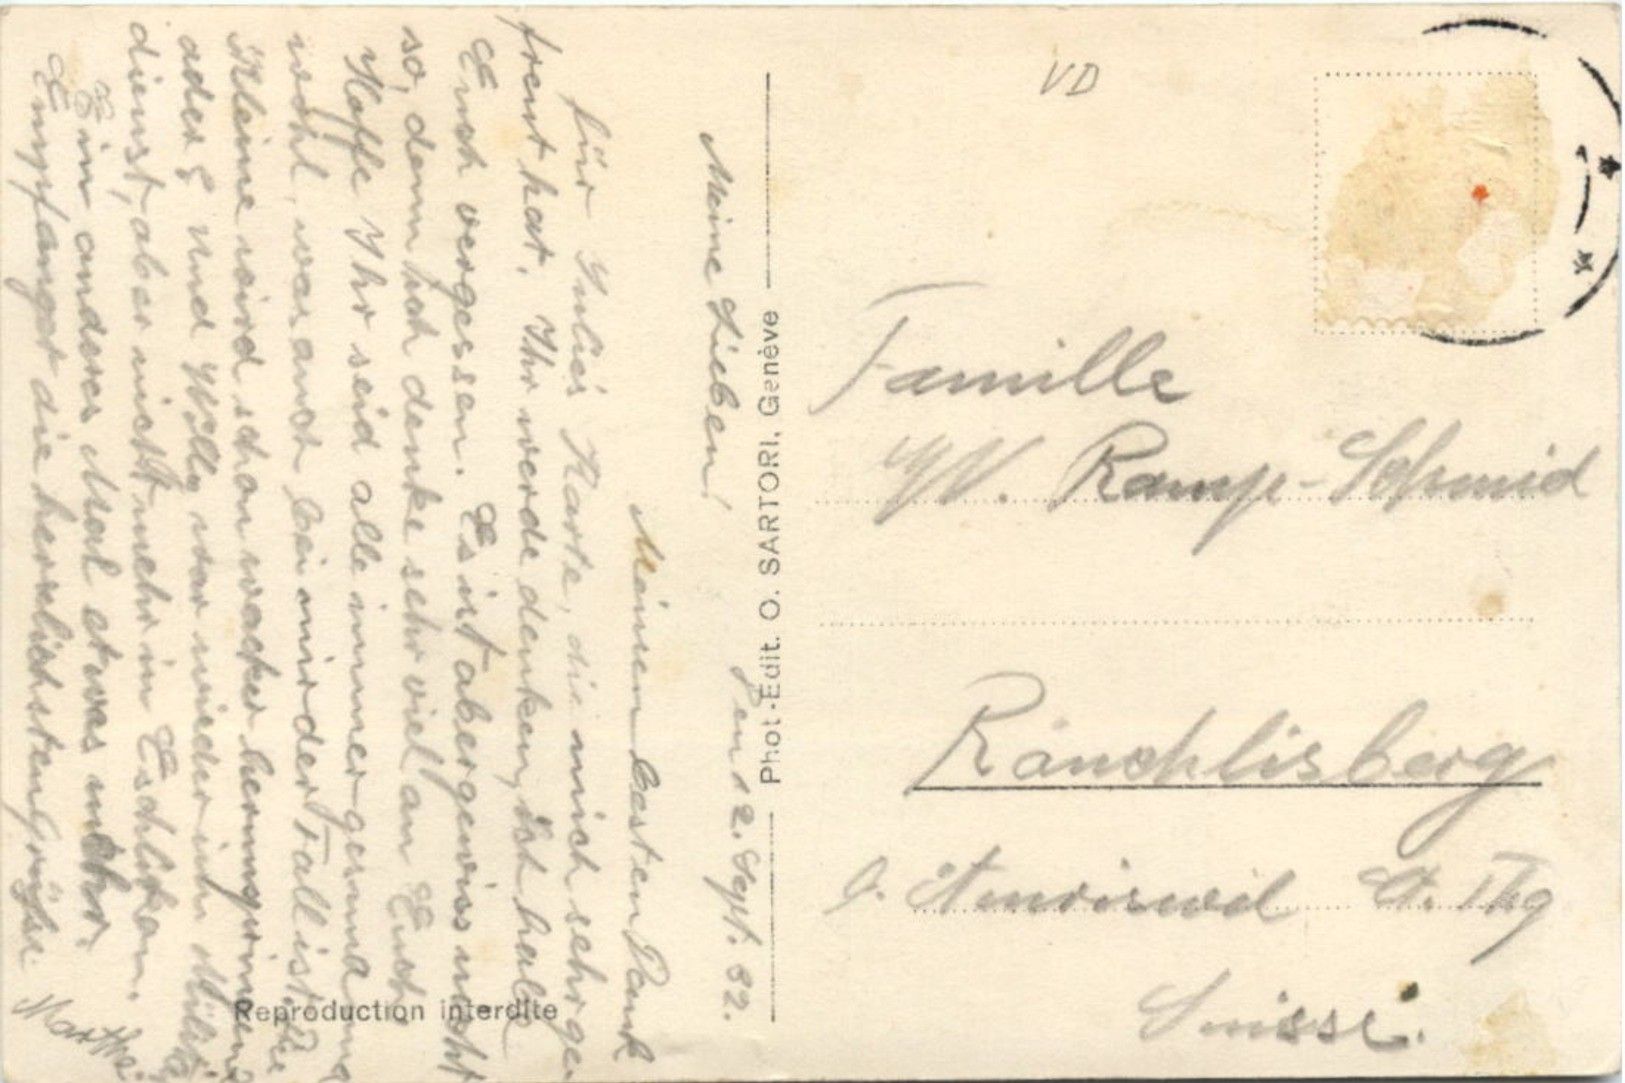 Den 12. Sept. 32.
Meine Lieben!
Meinen besten Dank
für Julie's Karte, die mich sehr ge-
freut hat. Ihr werde denken, ich habe
Euch vergessen. Es ist aber gewiss nicht
so, denn ich denke sehr viel an Euch
Hoffe Ihr seid alle immer gesund und
wohl, was auch bei mir der Fall ist. Die
Kleine wird schon wacker herumspringen
oder? Und Willy war wieder im Militär
dienst, aber nicht mehr in Eschlikon.
Ein anderes Mal etwas mehr.
Empfanget die herzlichsten Grüsse
Martha
Phot-Edit. O. SARTORI, Genève
Reproduction interdite
VD
Famille
W. Ramp-Schmid
Räuchlisberg
Ct. Thg
Suisse.